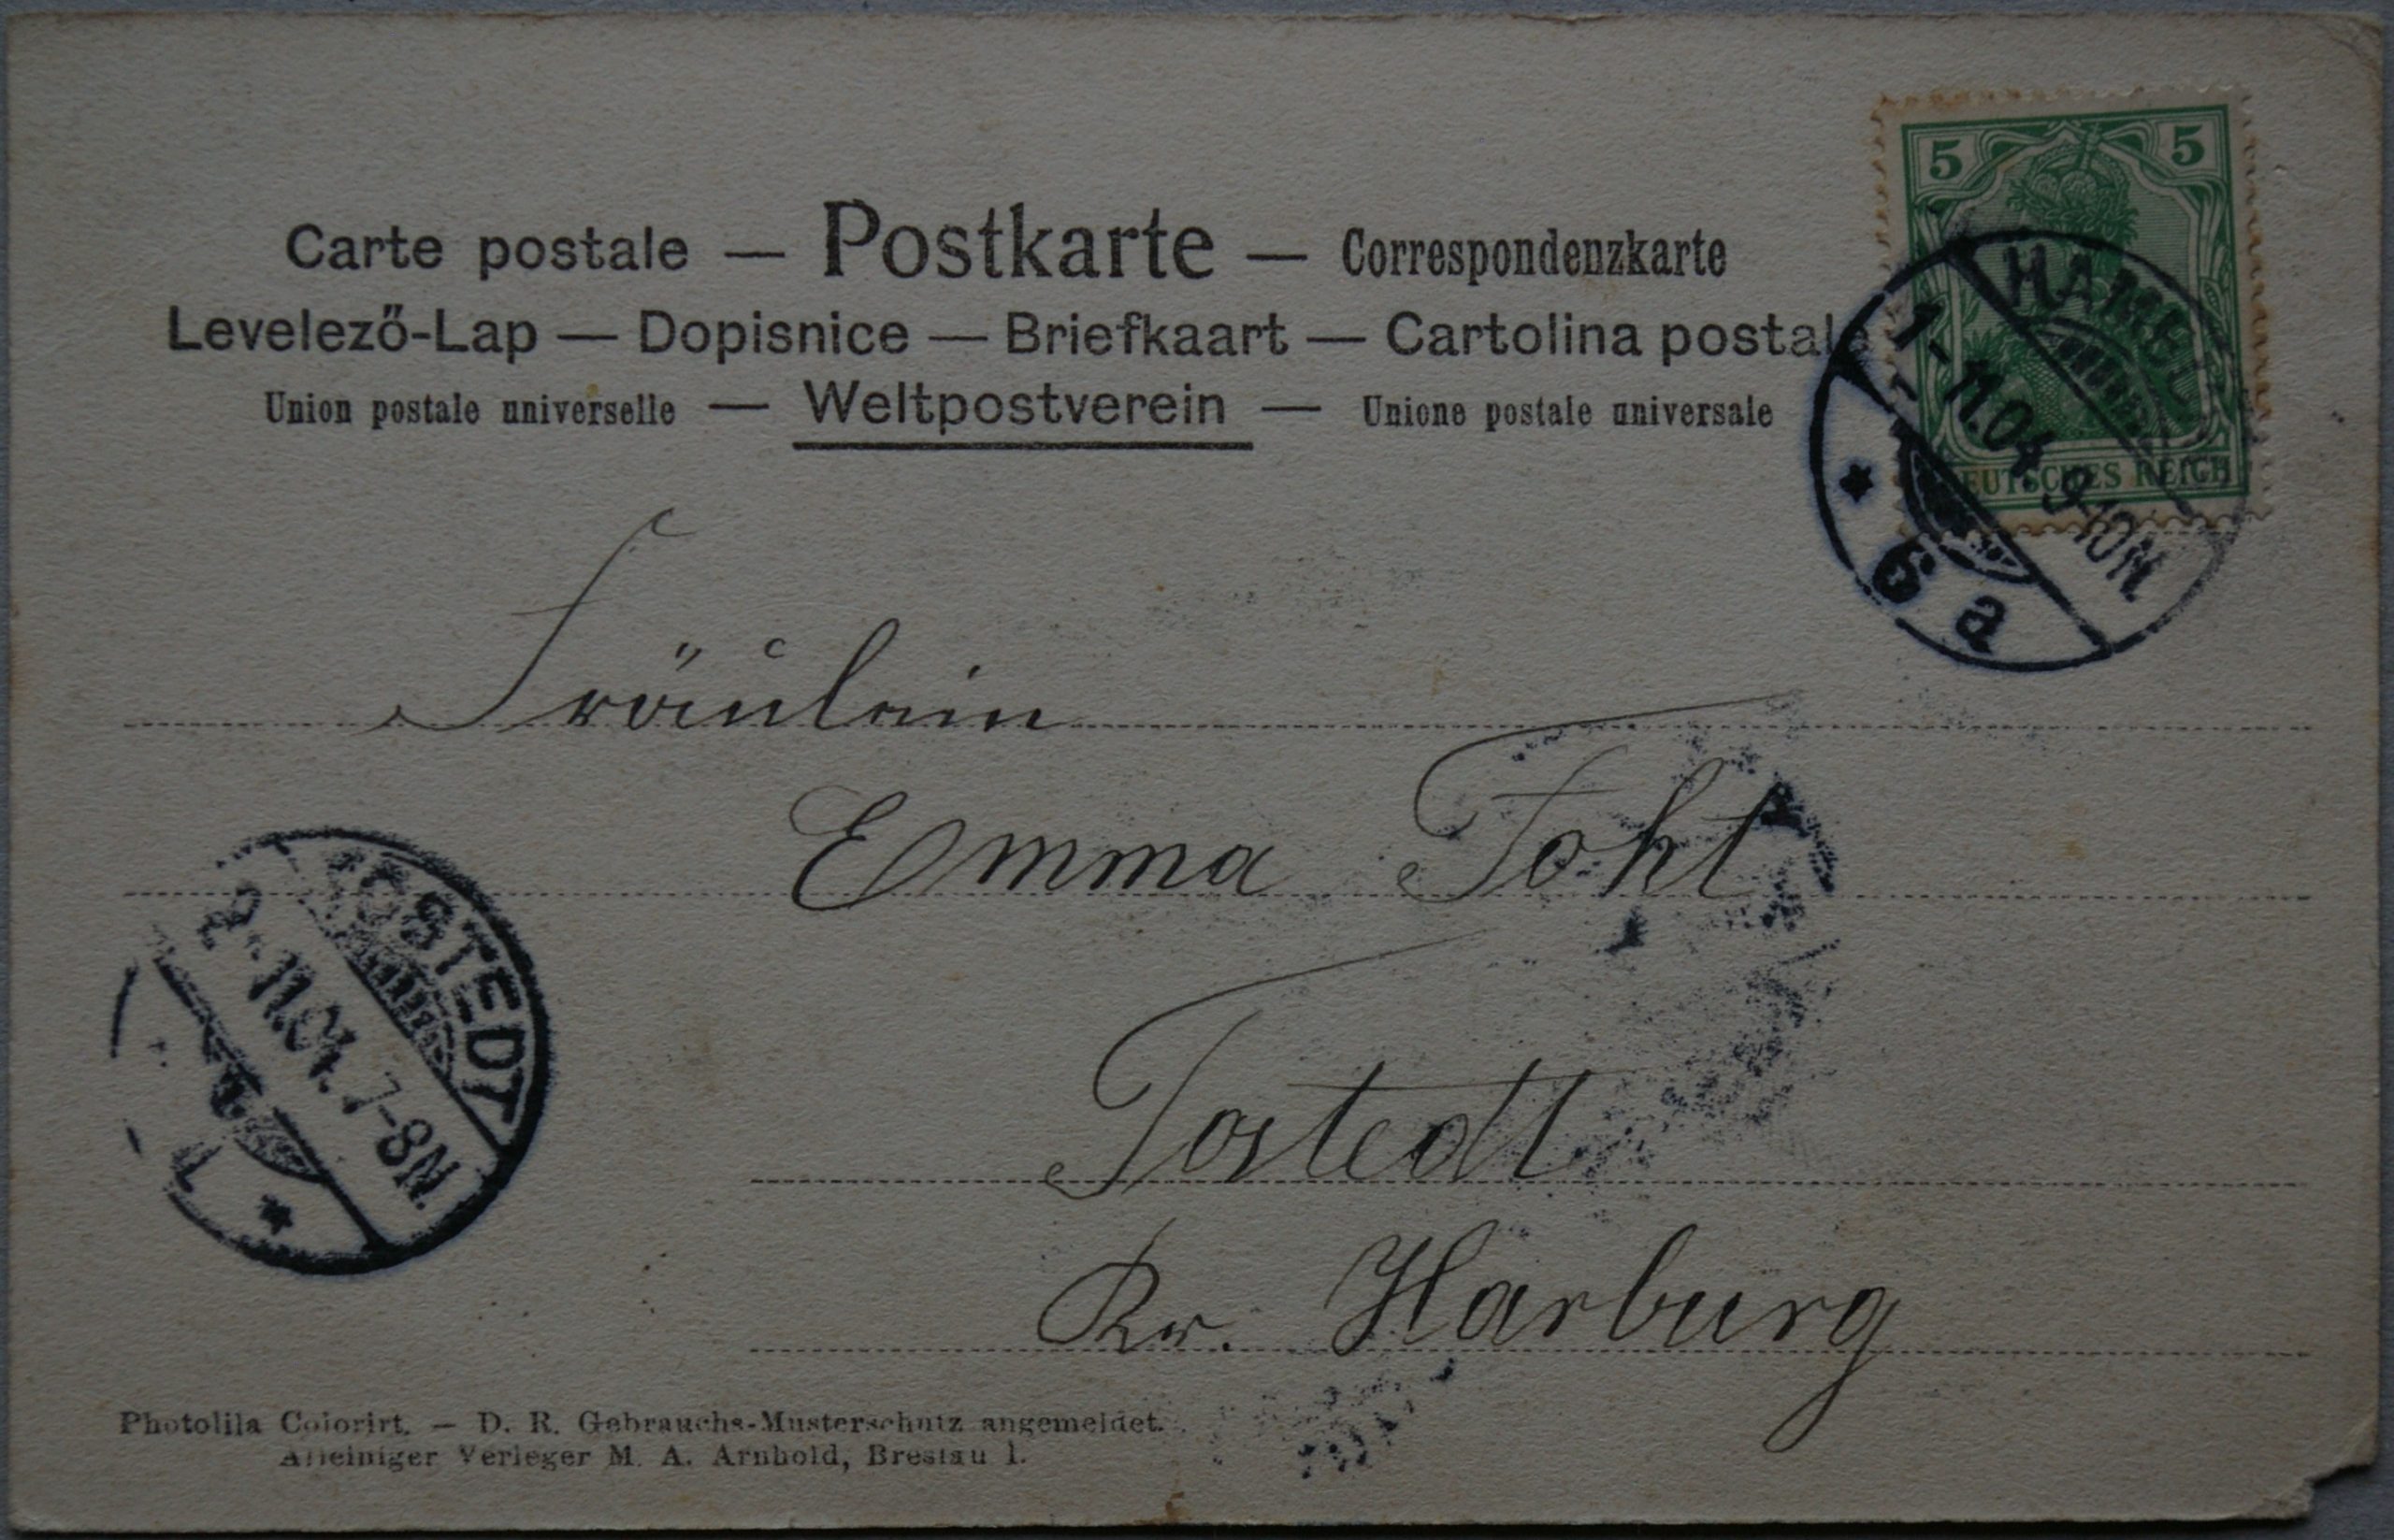 Carte postale — Postkarte — Correspondenzkarte
Levelező-Lap — Dopisnice — Briefkaart — Cartolina postale
Union postale universelle — Weltpostverein — Unione postale universale
5 5
DEUTSCHES REICH
HAMBURG
1-11.04. 9-10N.
* 6 a
Fräulein
Emma Foht
TOSTEDT
2.11.04. 7-8N.
*
Tostedt
Kr. Harburg
Photolila Colorirt. — D. R. Gebrauchs-Musterschutz angemeldet.
Alleiniger Verleger M. A. Arnhold, Breslau I.